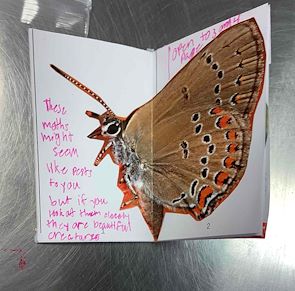 These
moths
might
seem
like pests
to you
but if you
look at them closely
they are beautiful
creatures
open to
page
2